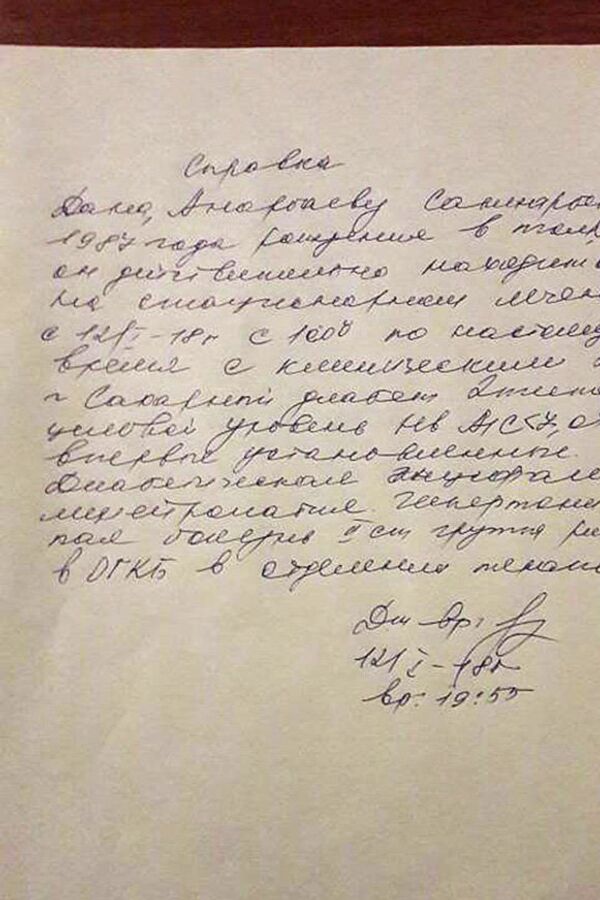 Справка
Дана, Анарбаеву
1987 года рождения в том,
он действительно находит
на стационарном лечен
с 12/I-18г с 10 00 по настоящ
время с клиническим
Сахарный диабет 2 типа
целевой уровень Hb A1C<7,0
впервые установленные.
Диабетическая энцефало
полинейропатия. Гипертони
ная болезнь II ст группа ри
в ОГКБ в отделении
Д/ вр:
12/I-18г
вр: 19:55